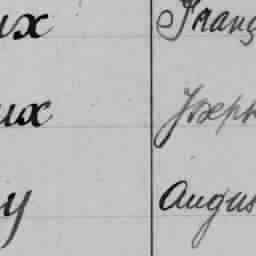 ux Franç
ux Joseph
y Augus